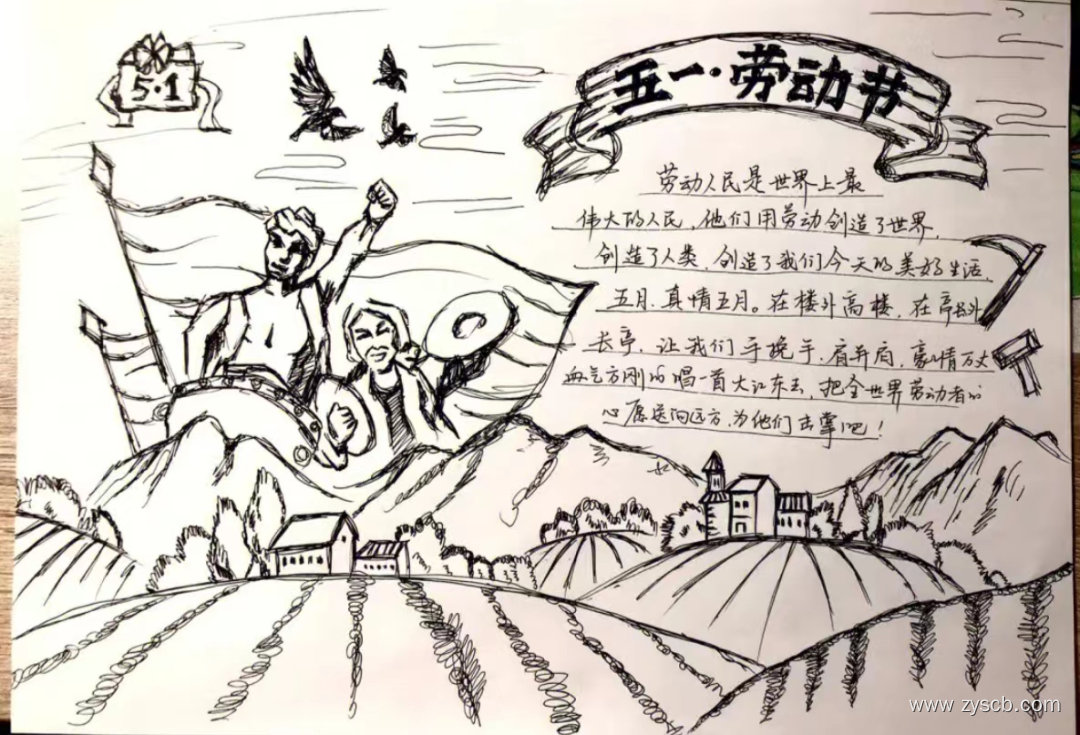 5·1
五一·劳动节
劳动人民是世界上最
伟大的人民,他们用劳动创造了世界,
创造了人类,创造了我们今天的美好生活,
五月,真情五月。在楼外高楼,在亭外
长亭,让我们手挽手,肩并肩,豪情万丈
血气方刚的唱一首大江东去,把全世界劳动者的
心愿送向远方,为他们击掌吧!
www.zyscb.com